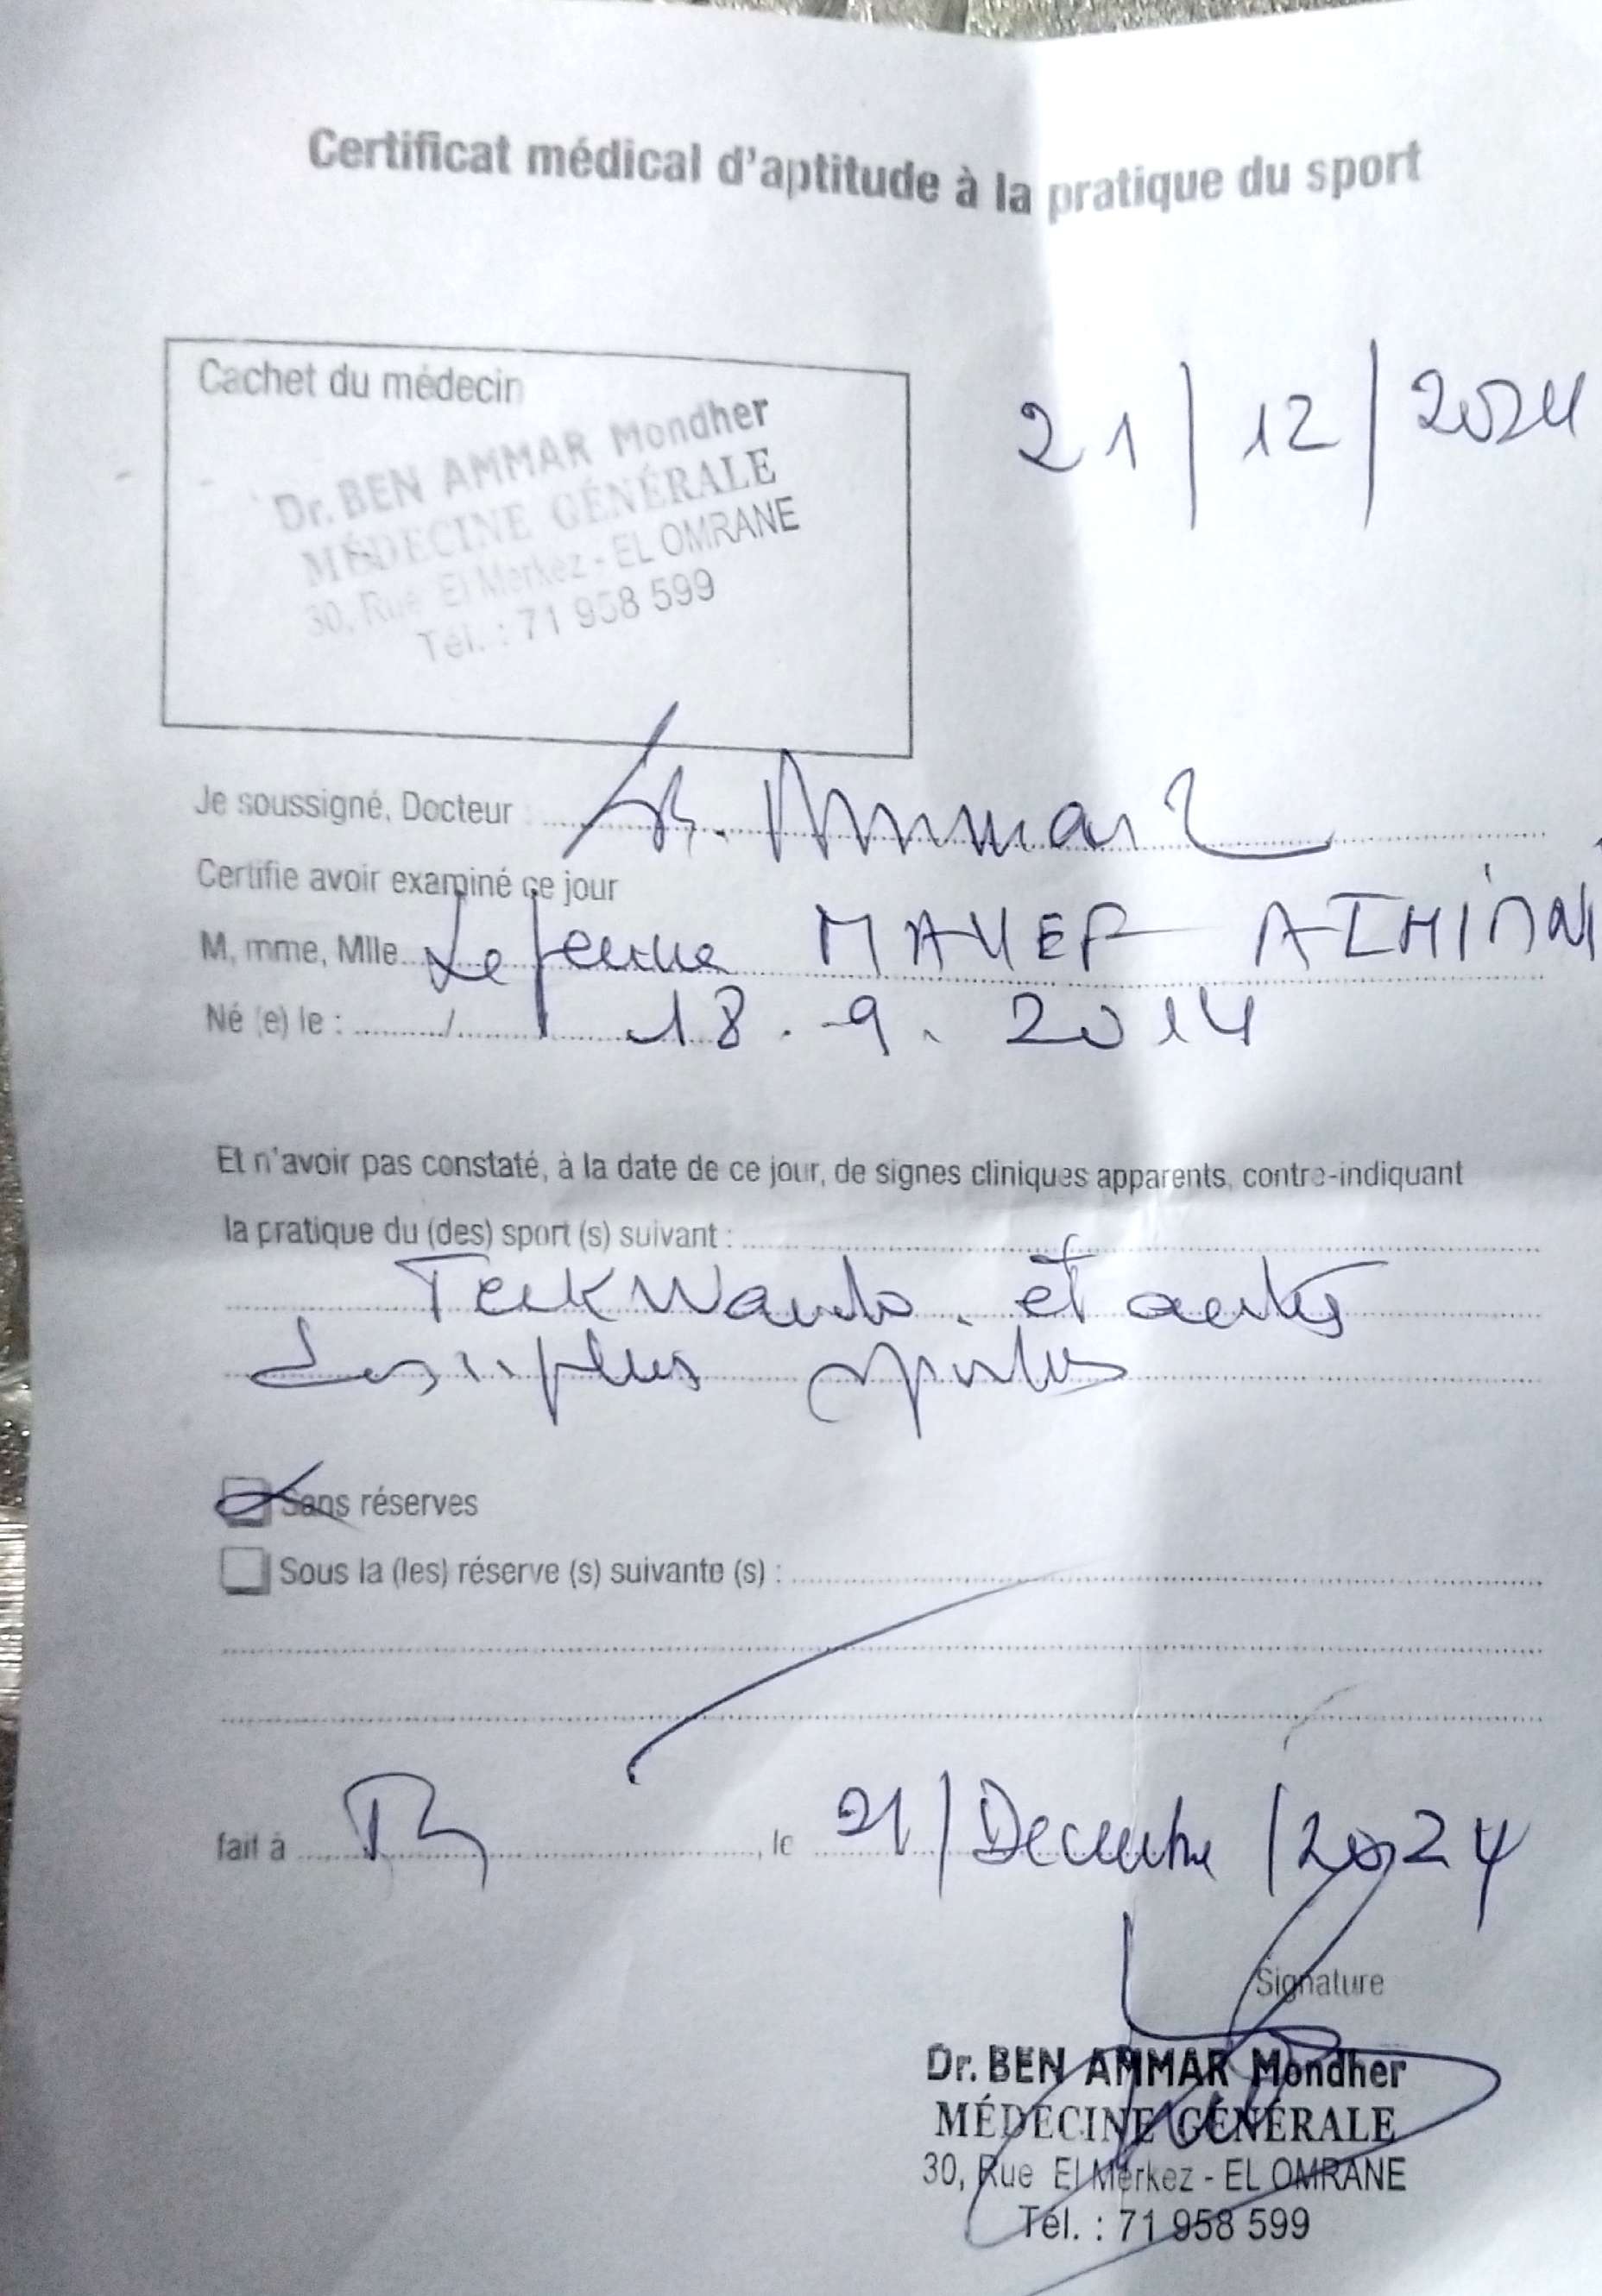 Certificat médical d'aptitude à la pratique du sport
Cachet du médecin
Dr. BEN AMMAR Mondher
MÉDECINE GÉNÉRALE
30, Rue El Merkez - EL OMRANE
Tél. : 71 958 599
21/12/2024
Je soussigné, Docteur : Ammar
Certifie avoir examiné ce jour
M, mme, Mlle Le jeune MAHER
Né (e) le : 18.9.2014
Et n'avoir pas constaté, à la date de ce jour, de signes cliniques apparents, contre-indiquant
la pratique du (des) sport (s) suivant :
et autres
Sans réserves
Sous la (les) réserve (s) suivante (s) :
fait à , le 21/Decembre/2024
Signature
Dr. BEN AMMAR Mondher
MÉDECINE GÉNÉRALE
30, Rue El Merkez - EL OMRANE
Tél. : 71 958 599